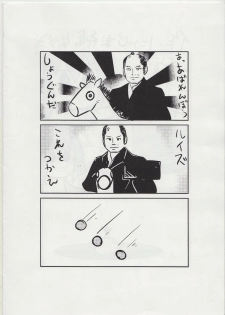 あ、あばれんぼう
しょうぐんだ
ルイズ
これを
つかえ